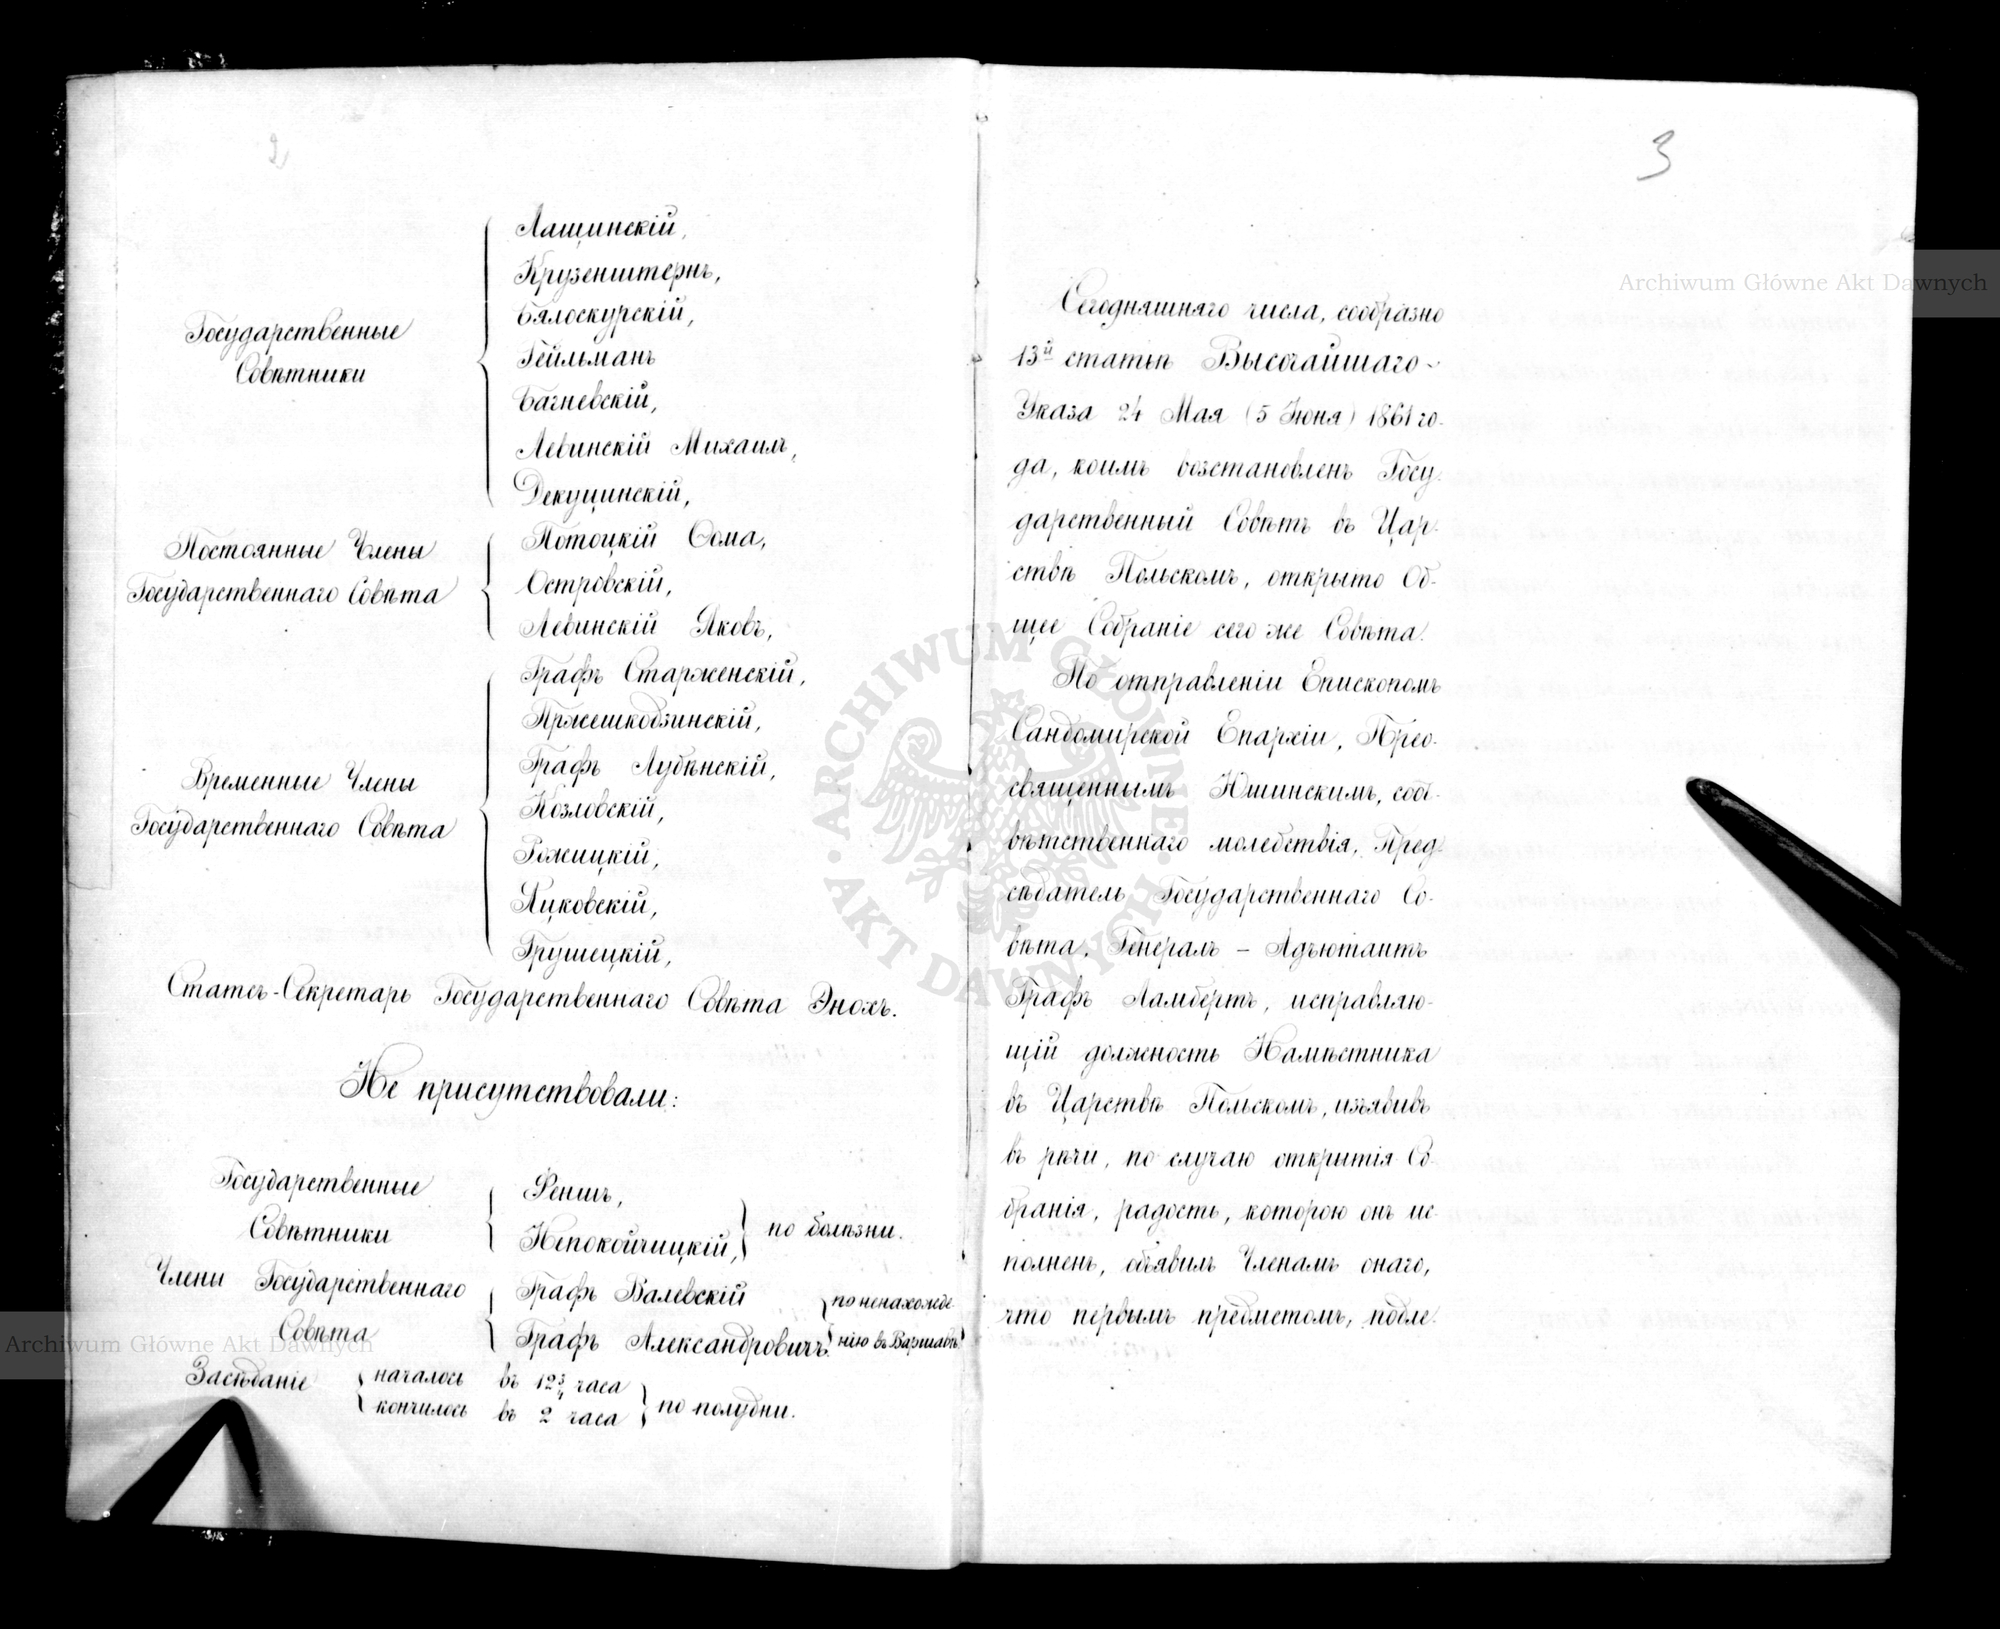 2
Государственные
Совѣтники
Лащинскій,
Крузенштернъ,
Бялоскурскій,
Гейльманъ
Багневскій,
Левинскій Михаилъ,
Декуцинскій,
Постоянные Члены
Государственнаго Совѣта
Потоцкій Ѳома,
Островскій,
Левинскій Яковъ,
Временные Члены
Государственнаго Совѣта
Графъ Старженскій,
Пржешкодзинскій,
Графъ Лубѣнскій,
Козловскій,
Рожицкій,
Яцковскій,
Грушецкій,
Статсъ-Секретарь Государственнаго Совѣта Энохъ.
Не присутствовали:
Государственные
Совѣтники
Феншъ,
Непокойчицкій,
по болѣзни.
Члены Государственнаго
Совѣта
Графъ Валевскій
Графъ Александровичъ
по ненахожде-
нію въ Варшавѣ
Засѣданіе
началось въ 12¾ часа
кончилось въ 2 часа
по полудни.
3
Сегодняшняго числа, сообразно
13й статьѣ Высочайшаго
Указа 24 Мая (5 Іюня) 1861 го-
да, коимъ возстановленъ Госу-
дарственный Совѣтъ въ Цар-
ствѣ Польскомъ, открыто Об-
щее Собраніе сего же Совѣта.
По отправленіи Епископомъ
Сандомирской Епархіи, Прео-
священнымъ Юшинскимъ, соот-
вѣтственнаго молебствія, Пред-
сѣдатель Государственнаго Со-
вѣта, Генералъ – Адъютантъ
Графъ Ламбертъ, исправляю-
щій должность Намѣстника
въ Царствѣ Польскомъ, изъявивъ
въ рѣчи, по случаю открытія Со-
бранія, радость, которою онъ ис-
полненъ, объявилъ Членамъ онаго,
что первымъ предметомъ, подле-
Archiwum Główne Akt Dawnych
Archiwum Główne Akt Dawnych
ARCHIWUM GŁÓWNE
AKT DAWNYCH